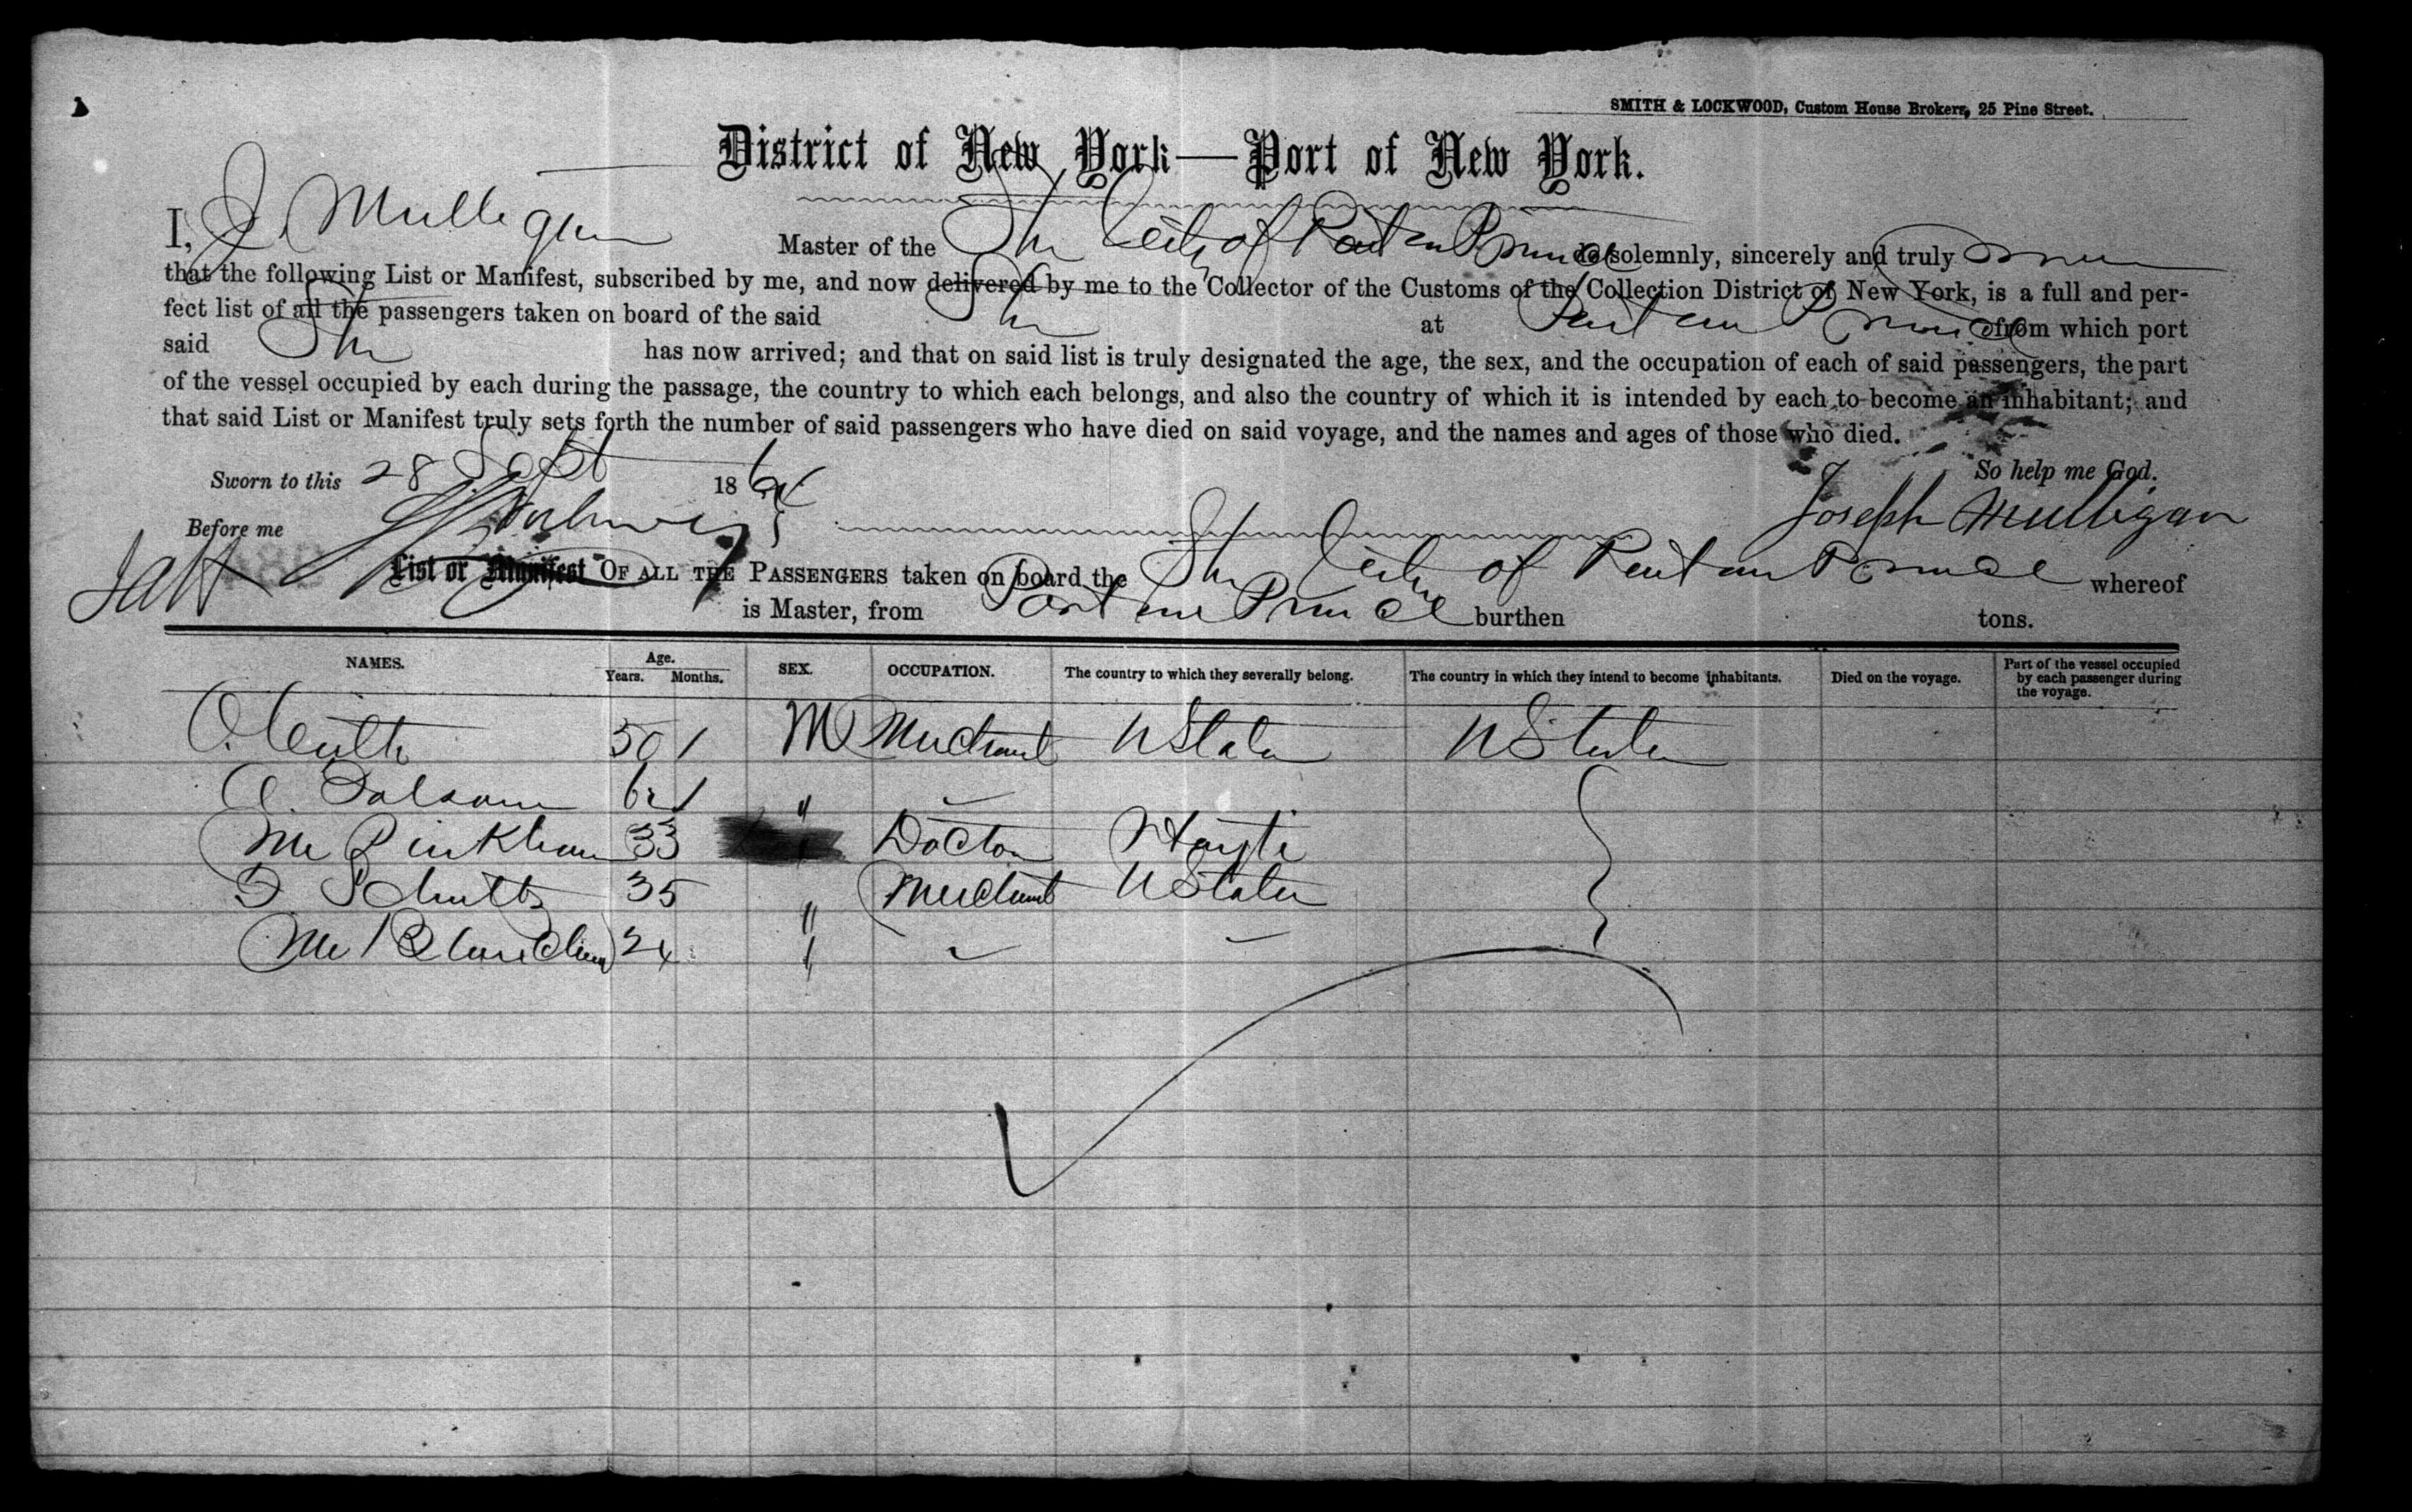 SMITH & LOCKWOOD, Custom House Brokers, 25 Pine Street.
District of New York—Port of New York.
I, J. Mulligan Master of the Str City of Port au Prince do solemnly, sincerely and truly
that the following List or Manifest, subscribed by me, and now delivered by me to the Collector of the Customs of the Collection District of New York, is a full and per-
fect list of all the passengers taken on board of the said Str at Port au Prince from which port
said Str has now arrived; and that on said list is truly designated the age, the sex, and the occupation of each of said passengers, the part
of the vessel occupied by each during the passage, the country to which each belongs, and also the country of which it is intended by each to become an inhabitant; and
that said List or Manifest truly sets forth the number of said passengers who have died on said voyage, and the names and ages of those who died.
Sworn to this 28 Sept 186 So help me God.
Before me Joseph Mulligan
List or Manifest OF ALL THE PASSENGERS taken on board the Str City of Port au Prince whereof
is Master, from Port au Prince burthen tons.
NAMES. Age. Years. Months. SEX. OCCUPATION. The country to which they severally belong. The country in which they intend to become inhabitants. Died on the voyage. Part of the vessel occupied by each passenger during the voyage.
O. 50 M Merchant U States U States
"
Mr Pinkham 33 Doctor Hayti
Schultz 35 " Merchant U States
Mr 24 "